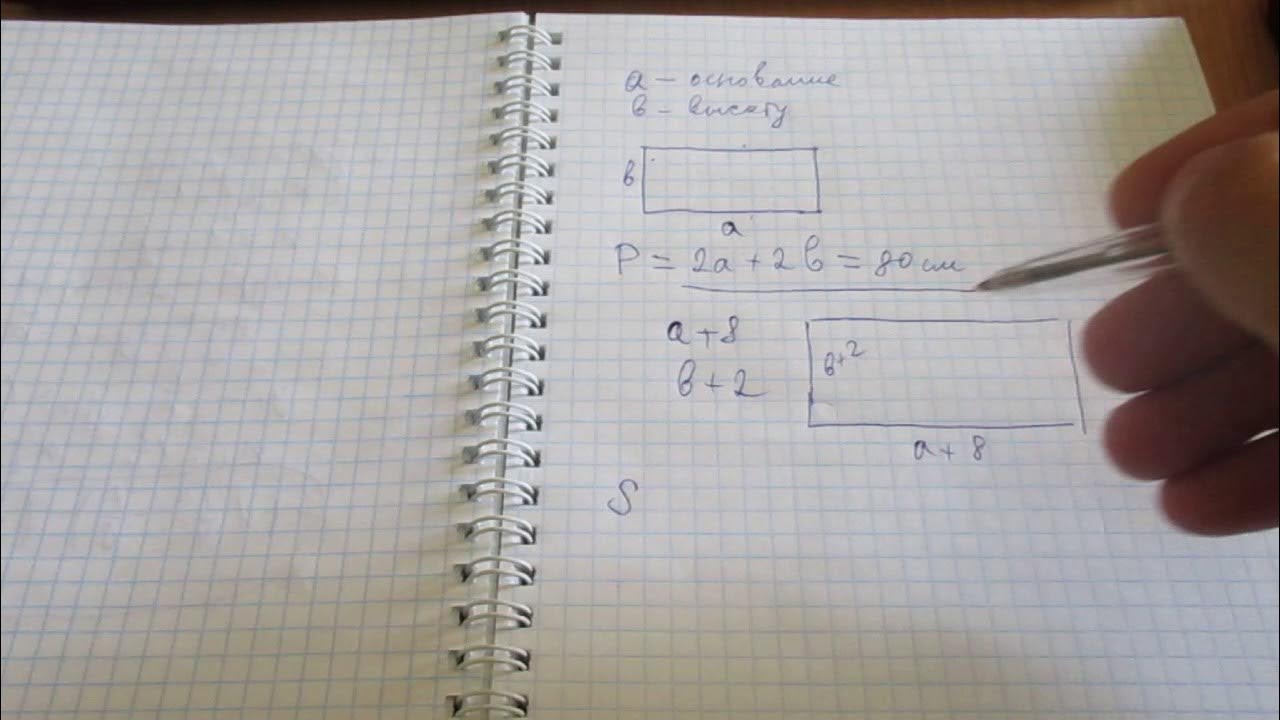 a – основание
в – высоту
в
a
P = 2a + 2в = 80 см
a + 8
в + 2
в+2
a + 8
S